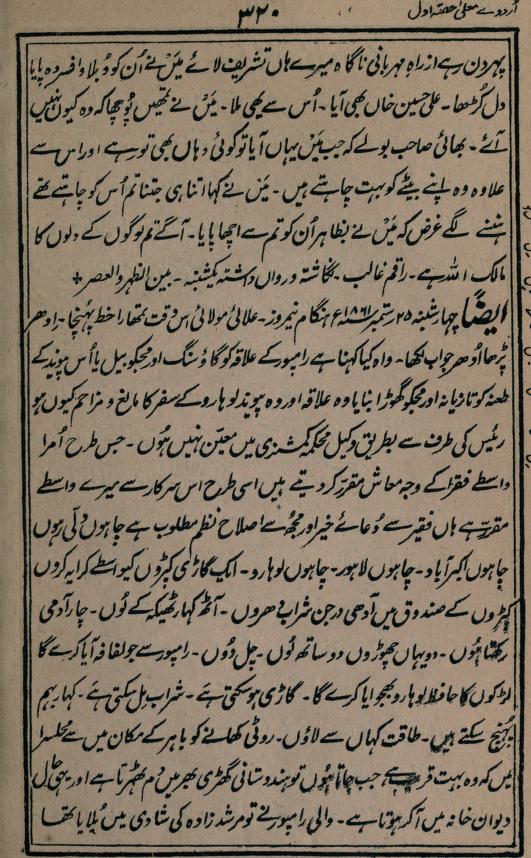 اُردوے معلی حصّہ اول
۳۲۰
پہر دن رہے از راہِ مہربانی ناگاہ میرے ہاں تشریف لائے مَیں نے اُن کو دُبلا و افسردہ پایا
دل کُڑھا۔ علی حسین خاں بھی آیا۔ اُس سے بھی ملا۔ مَیں نے تمھیں پُوچھا کہ وہ کیوں نہیں
آئے۔ بھائی صاحب بولے کہ جب مَیں یہاں آیا تو کوئی وہاں بھی تو رہے اور اس سے
علاوہ وہ اپنے بیٹے کو بہت چاہتے ہیں۔ مَیں نے کہا اتنا ہی جتنا تم اُس کو چاہتے تھے
ہنسنے لگے غرض کہ مَیں نے بظاہر اُن کو تم سے اچھا پایا۔ آگے تم لوگوں کے دلوں کا
مالک اللہ ہے۔ راقم غالب۔ نگاشتہ و رواں داشتہ یکشنبہ۔ بین الظہر والعصر
ایضاً چہارشنبہ ۲۵ ستمبر ۱۸۶۱ء ہنگام نیمروز۔ علائی مولائی اس وقت تمھارا خط پہُنچا۔ اودھر
پڑھا اُودھر جواب لکھا۔ واہ کیا کہنا ہے رامپور کے علاقہ کو گاؤ سنگ اور مجکو بیل یا اُس پیوند کے
طعنہ کو تازیانہ اور مجکو گھوڑا بنایا وہ علاقہ اور وہ پیوند لوہارو کے سفر کا مانع و مزاحم کیوں ہو
رئیس کی طرف سے بطریق وکیل محکمہ کمشنری میں معیّن نہیں ہُوں۔ جس طرح اُمرا
واسطے فقرا کے وجہ معاش مقرر کر دیتے ہیں اسی طرح اس سرکار سے میرے واسطے
مقرر ہے ہاں فقیر سے دُعائے خیر اور مجھُ سے اصلاح نظم مطلوب ہے چاہوں دلّی رہوں
چاہوں اکبر آباد۔ چاہوں لاہور۔ چاہوں لوہارو۔ ایک گاڑی کپڑوں کیواسطے کرایہ کروں
کپڑوں کے صندوق میں آدھی درجن شراب دھروں۔ آٹھ کہار ٹھیکہ کے لُوں۔ چار آدمی
رکھتا ہُوں۔ دو یہاں چھوڑوں دو ساتھ لُوں۔ چل دُوں۔ رامپور سے جو لفافہ آیا کرے گا
لڑکوں کا حافظ لوہارو بھجوایا کرے گا۔ گاڑی ہو سکتی ہے۔ شراب مل سکتی ہے۔ کہار بہم
پہُنچ سکتے ہیں۔ طاقت کہاں سے لاؤں۔ روٹی کھانے کو باہر کے مکان میں سے محلسرا
میں کہ وہ بہت قریب ہے جب جاتا ہُوں تو ہندوستانی گھڑی بھر میں دم ٹھہرتا ہے اور یہی حال
دیوان خانہ میں آ کر ہوتا ہے۔ والی رامپور نے تو مرشد زادہ کی شادی میں بُلایا تھا